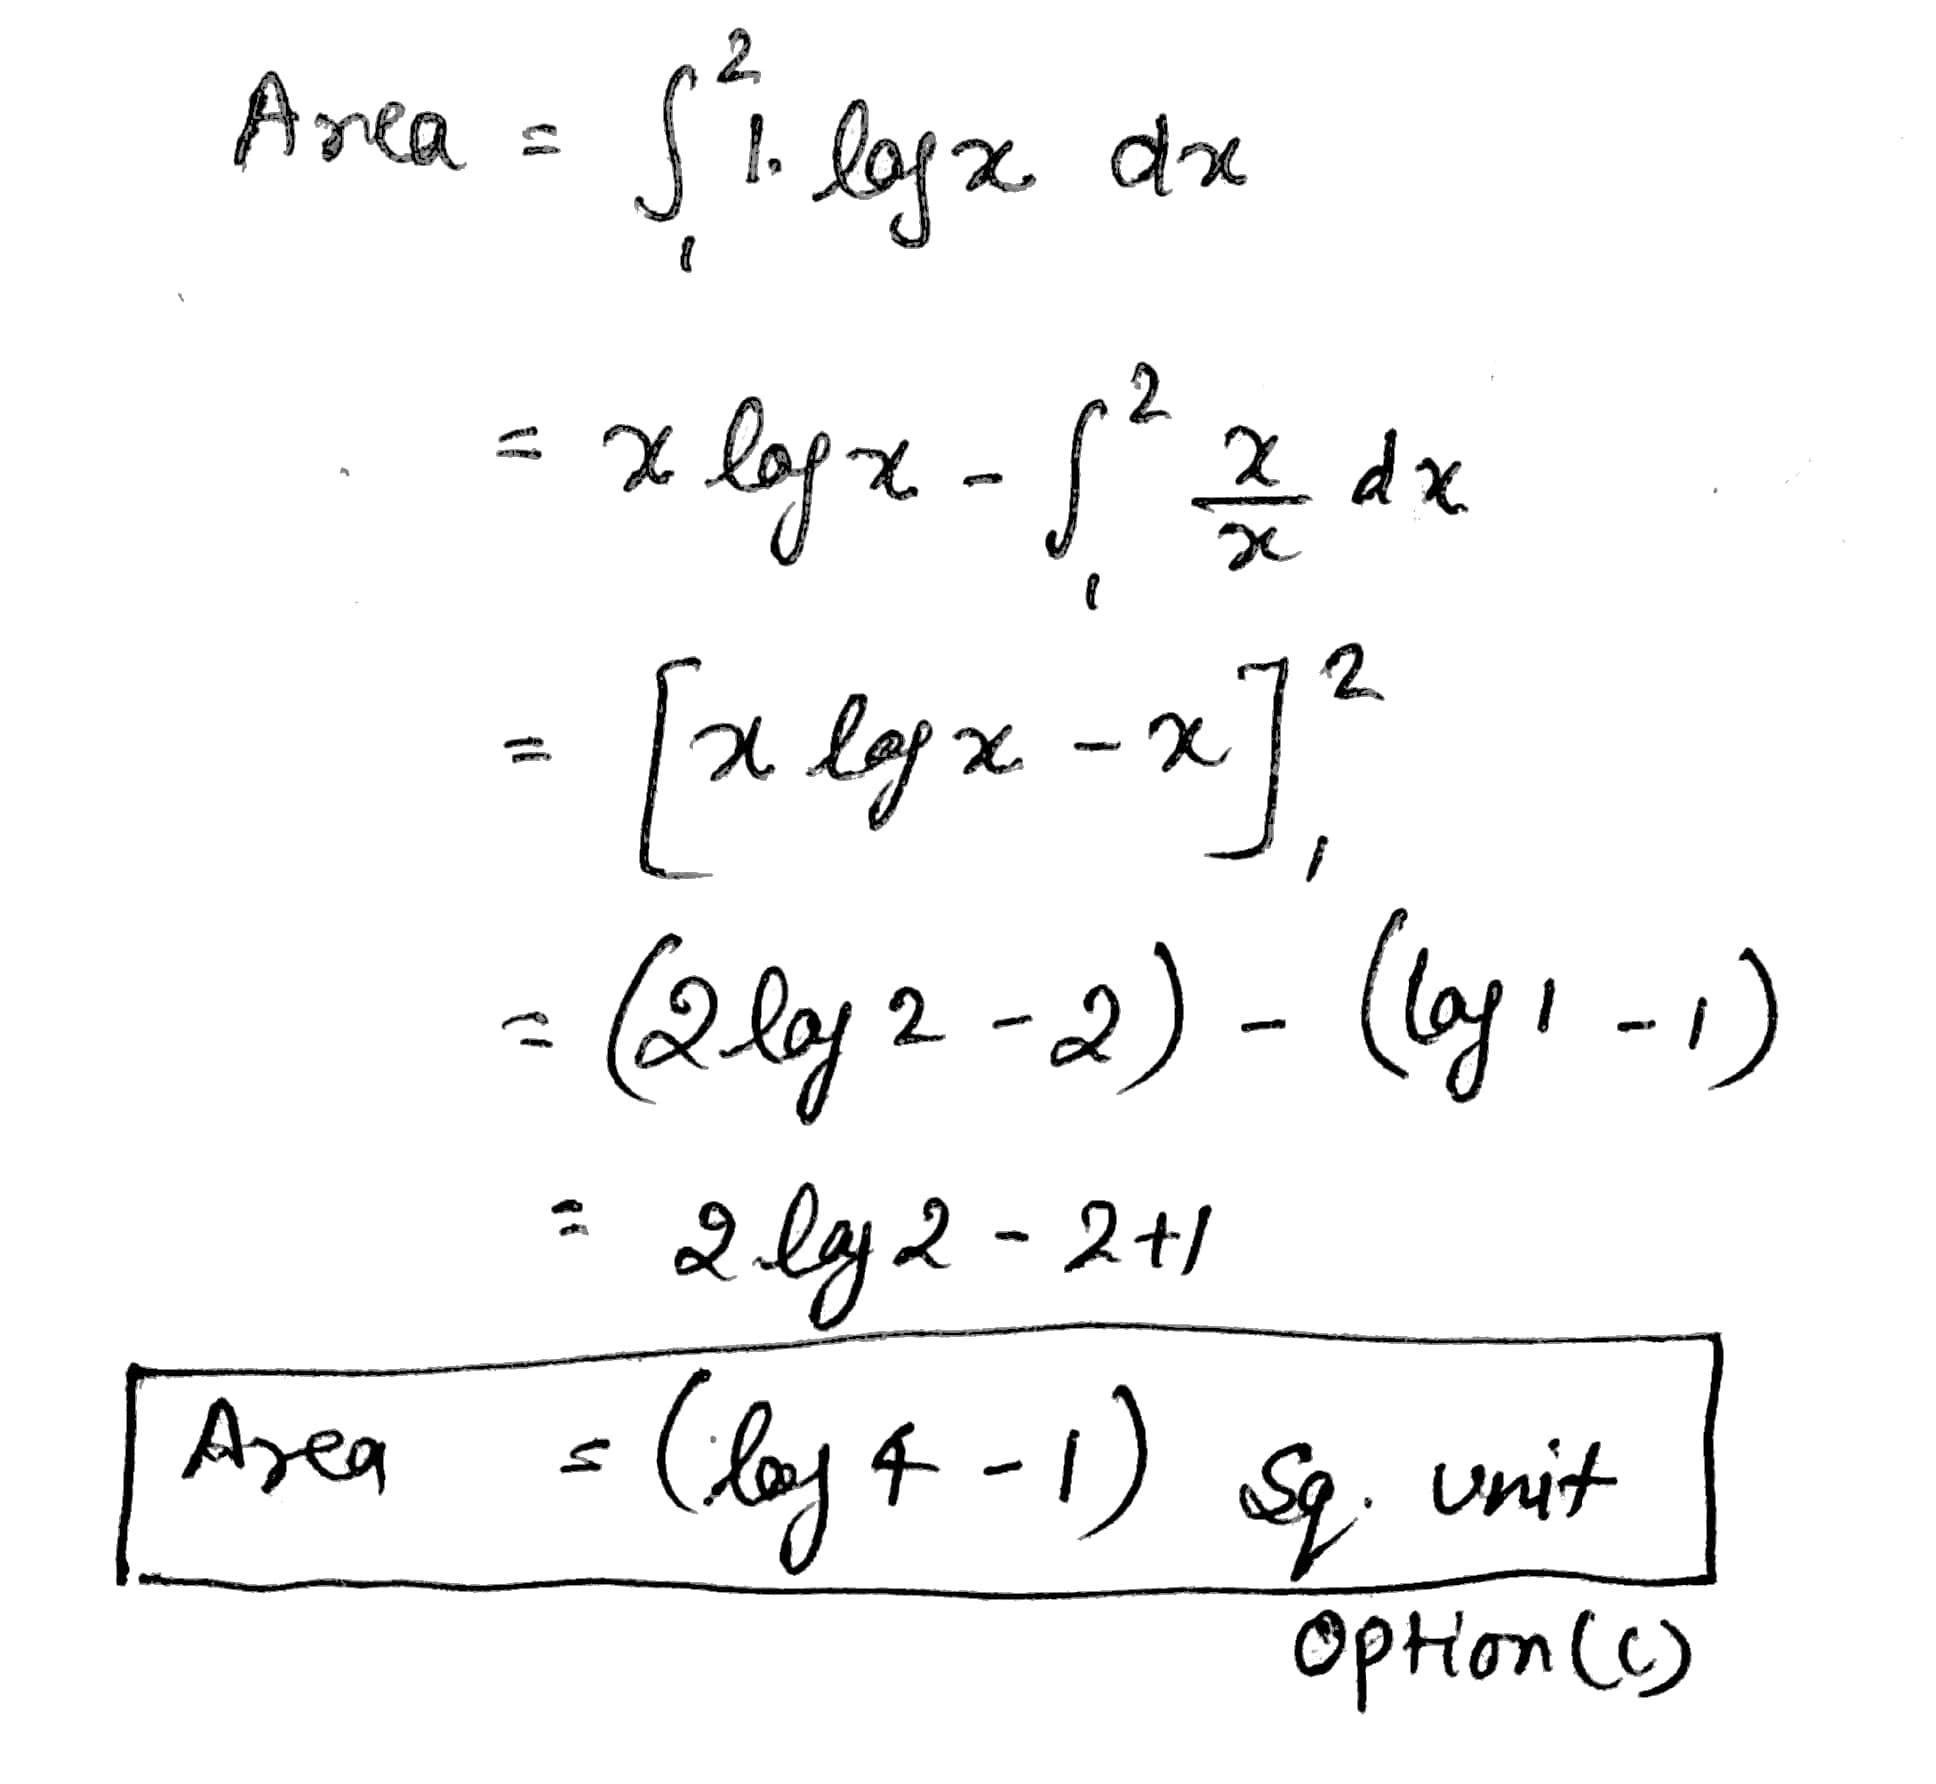 Area = ∫₁² 1. log x dx
= x log x - ∫₁² x/x dx
= [x log x - x]₁²
= (2 log 2 - 2) - (log 1 - 1)
= 2 log 2 - 2+1
Area = (log 4 - 1) Sq. unit
Option (C)